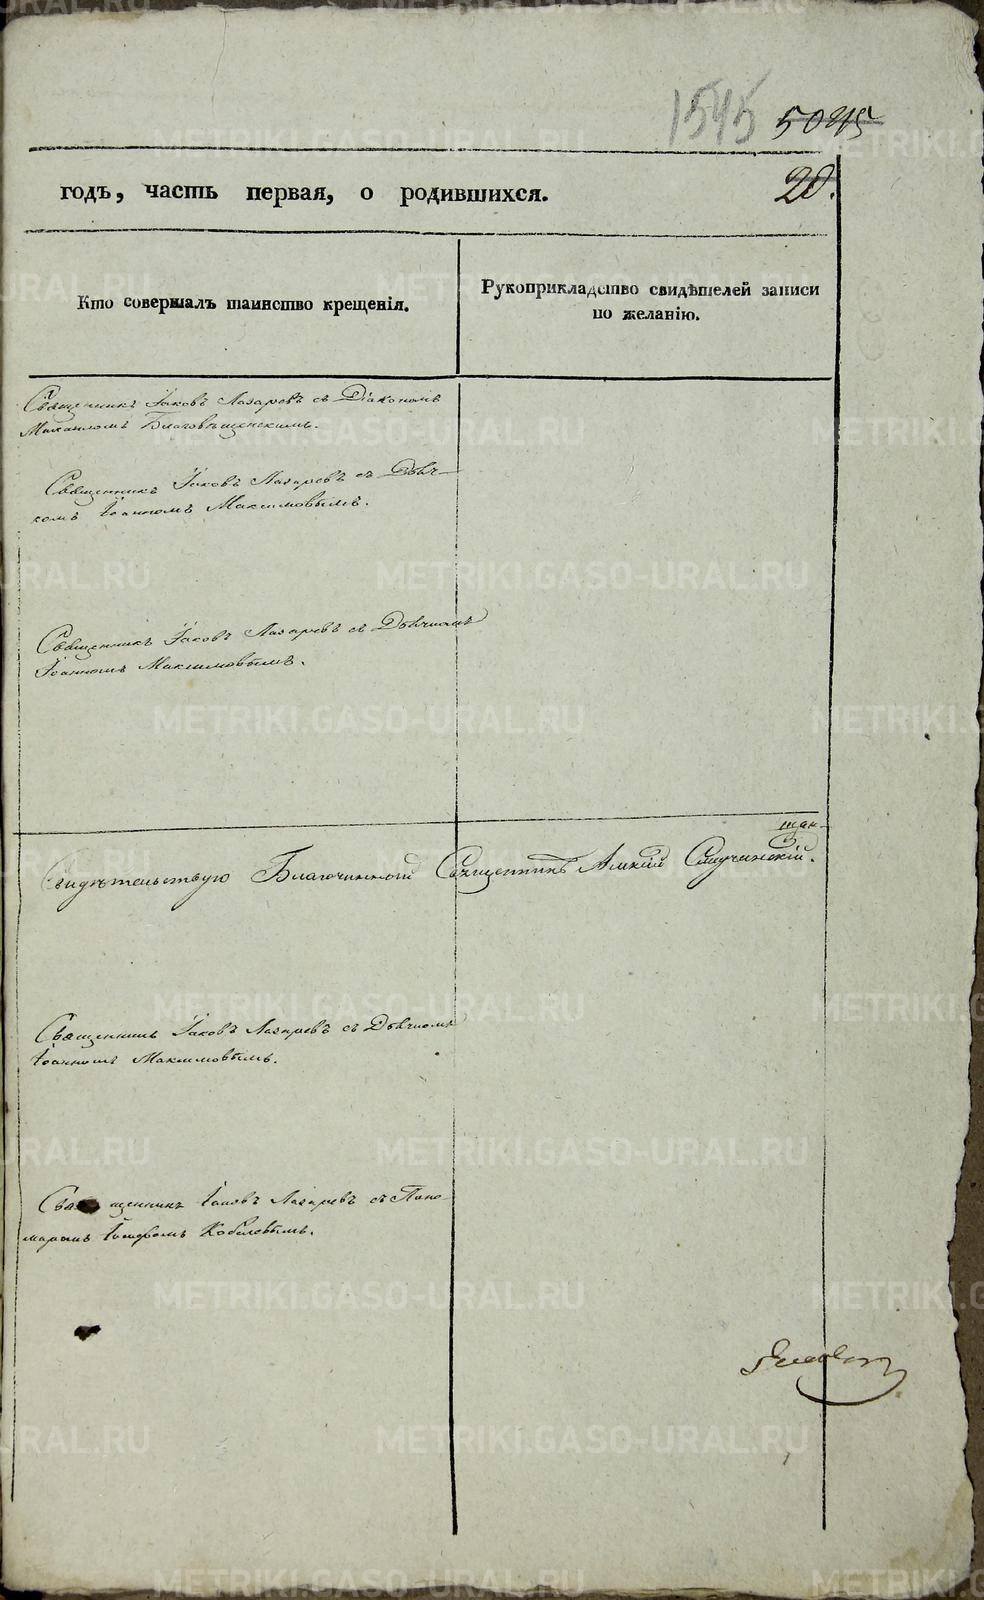 1545 5045
годъ, часть первая, о родившихся. 20.
Кто совершалъ таинство крещенія.
Рукоприкладство свидѣтелей записи
по желанію.
Священникъ Іаковъ Лазаревъ съ Діакономъ
Михаиломъ Благовѣщенскимъ.
Священникъ Іаковъ Лазаревъ съ Дьяч-
комъ Іоанномъ Максимовымъ.
Священникъ Іаковъ Лазаревъ съ Дьячкомъ
Іоанномъ Максимовымъ.
Свидѣтельствую Благочинный Священникъ
Священникъ Іаковъ Лазаревъ съ Дьячкомъ
Іоанномъ Максимовымъ.
Священникъ Іаковъ Лазаревъ съ Поно-
маремъ Кобелевымъ.
METRIKI.GASO-URAL.RU